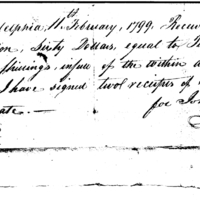 elphia, 11th February, 1799. Receiv
on, Sixty Dollars, equal to
Shillings, in full of the within a
I have signed two receipts of
ate —
for